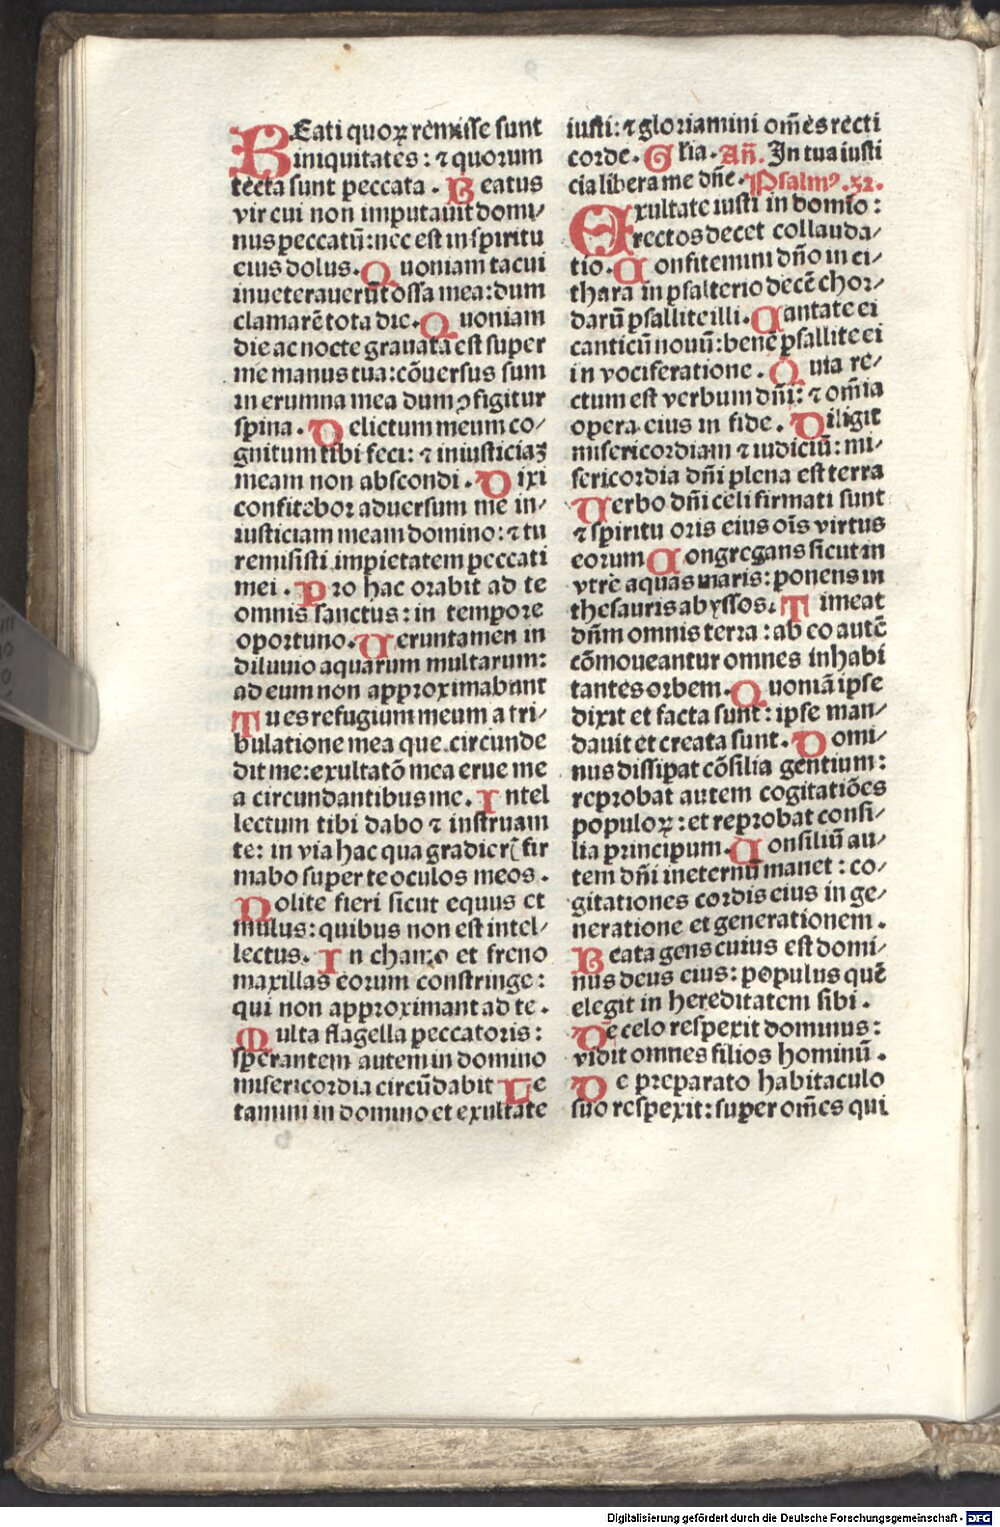 BEati quoꝝ remisse sunt
iniquitates: ⁊ quorum
tecta sunt peccata. Beatus
vir cui non imputauit domi/
nus peccatū: nec est in spiritu
eius dolus. Quoniam tacui
inueterauerūt ossa mea: dum
clamarē tota die. Quoniam
die ac nocte grauata est super
me manus tua: cōuersus sum
in erumna mea dum ꝯfigitur
spina. Delictum meum co/
gnitum tibi feci: ⁊ iniusticiaꝫ
meam non abscondi. Dixi
confitebor aduersum me in/
iusticiam meam domino: ⁊ tu
remisisti impietatem peccati
mei. Pro hac orabit ad te
omnis sanctus: in tempore
oportuno. Ueruntamen in
diluuio aquarum multarum:
ad eum non approximabunt
Tu es refugium meum a tri/
bulatione mea que circunde
dit me: exultatō mea erue me
a circundantibus me. Intel
lectum tibi dabo ⁊ instruam
te: in via hac qua gradierꝭ fir
mabo super te oculos meos.
Nolite fieri sicut equus et
mulus: quibus non est intel/
lectus. In chamo et freno
maxillas eorum constringe:
qui non approximant ad te.
Multa flagella peccatoris:
sperantem autem in domino
misericordia circūdabit Le
tamini in domino et exultate
iusti: ⁊ gloriamini om̄es recti
corde. Glia. An̄. In tua iusti
cia libera me dn̄e. Psalmꝰ .32.
Exultate iusti in domīo:
rectos decet collauda/
tio. Confitemini dn̄o in ci/
thara in psalterio decē chor/
darū psallite illi. Cantate ei
canticū nouū: bene psallite ei
in vociferatione. Quia re/
ctum est verbum dn̄i: ⁊ om̄ia
opera eius in fide. Diligit
misericordiam ⁊ iudiciū: mi/
sericordia dn̄i plena est terra
Uerbo dn̄i celi firmati sunt
⁊ spiritu oris eius oīs virtus
eorum Congregans sicut in
vtre aquas maris: ponens in
thesauris abyssos. Timeat
dn̄m omnis terra: ab eo autē
cōmoueantur omnes inhabi
tantes orbem. Quoniā ipse
dixit et facta sunt: ipse man/
dauit et creata sunt. Domi/
nus dissipat cōsilia gentium:
reprobat autem cogitatiōes
populoꝝ: et reprobat consi/
lia principum. Consiliū au/
tem dn̄i in eternū manet: co/
gitationes cordis eius in ge/
neratione et generationem.
Beata gens cuius est domi/
nus deus eius: populus quē
elegit in hereditatem sibi.
De celo respexit dominus:
vidit omnes filios hominū.
De preparato habitaculo
suo respexit: super om̄es qui
Digitalisierung gefördert durch die Deutsche Forschungsgemeinschaft - DFG